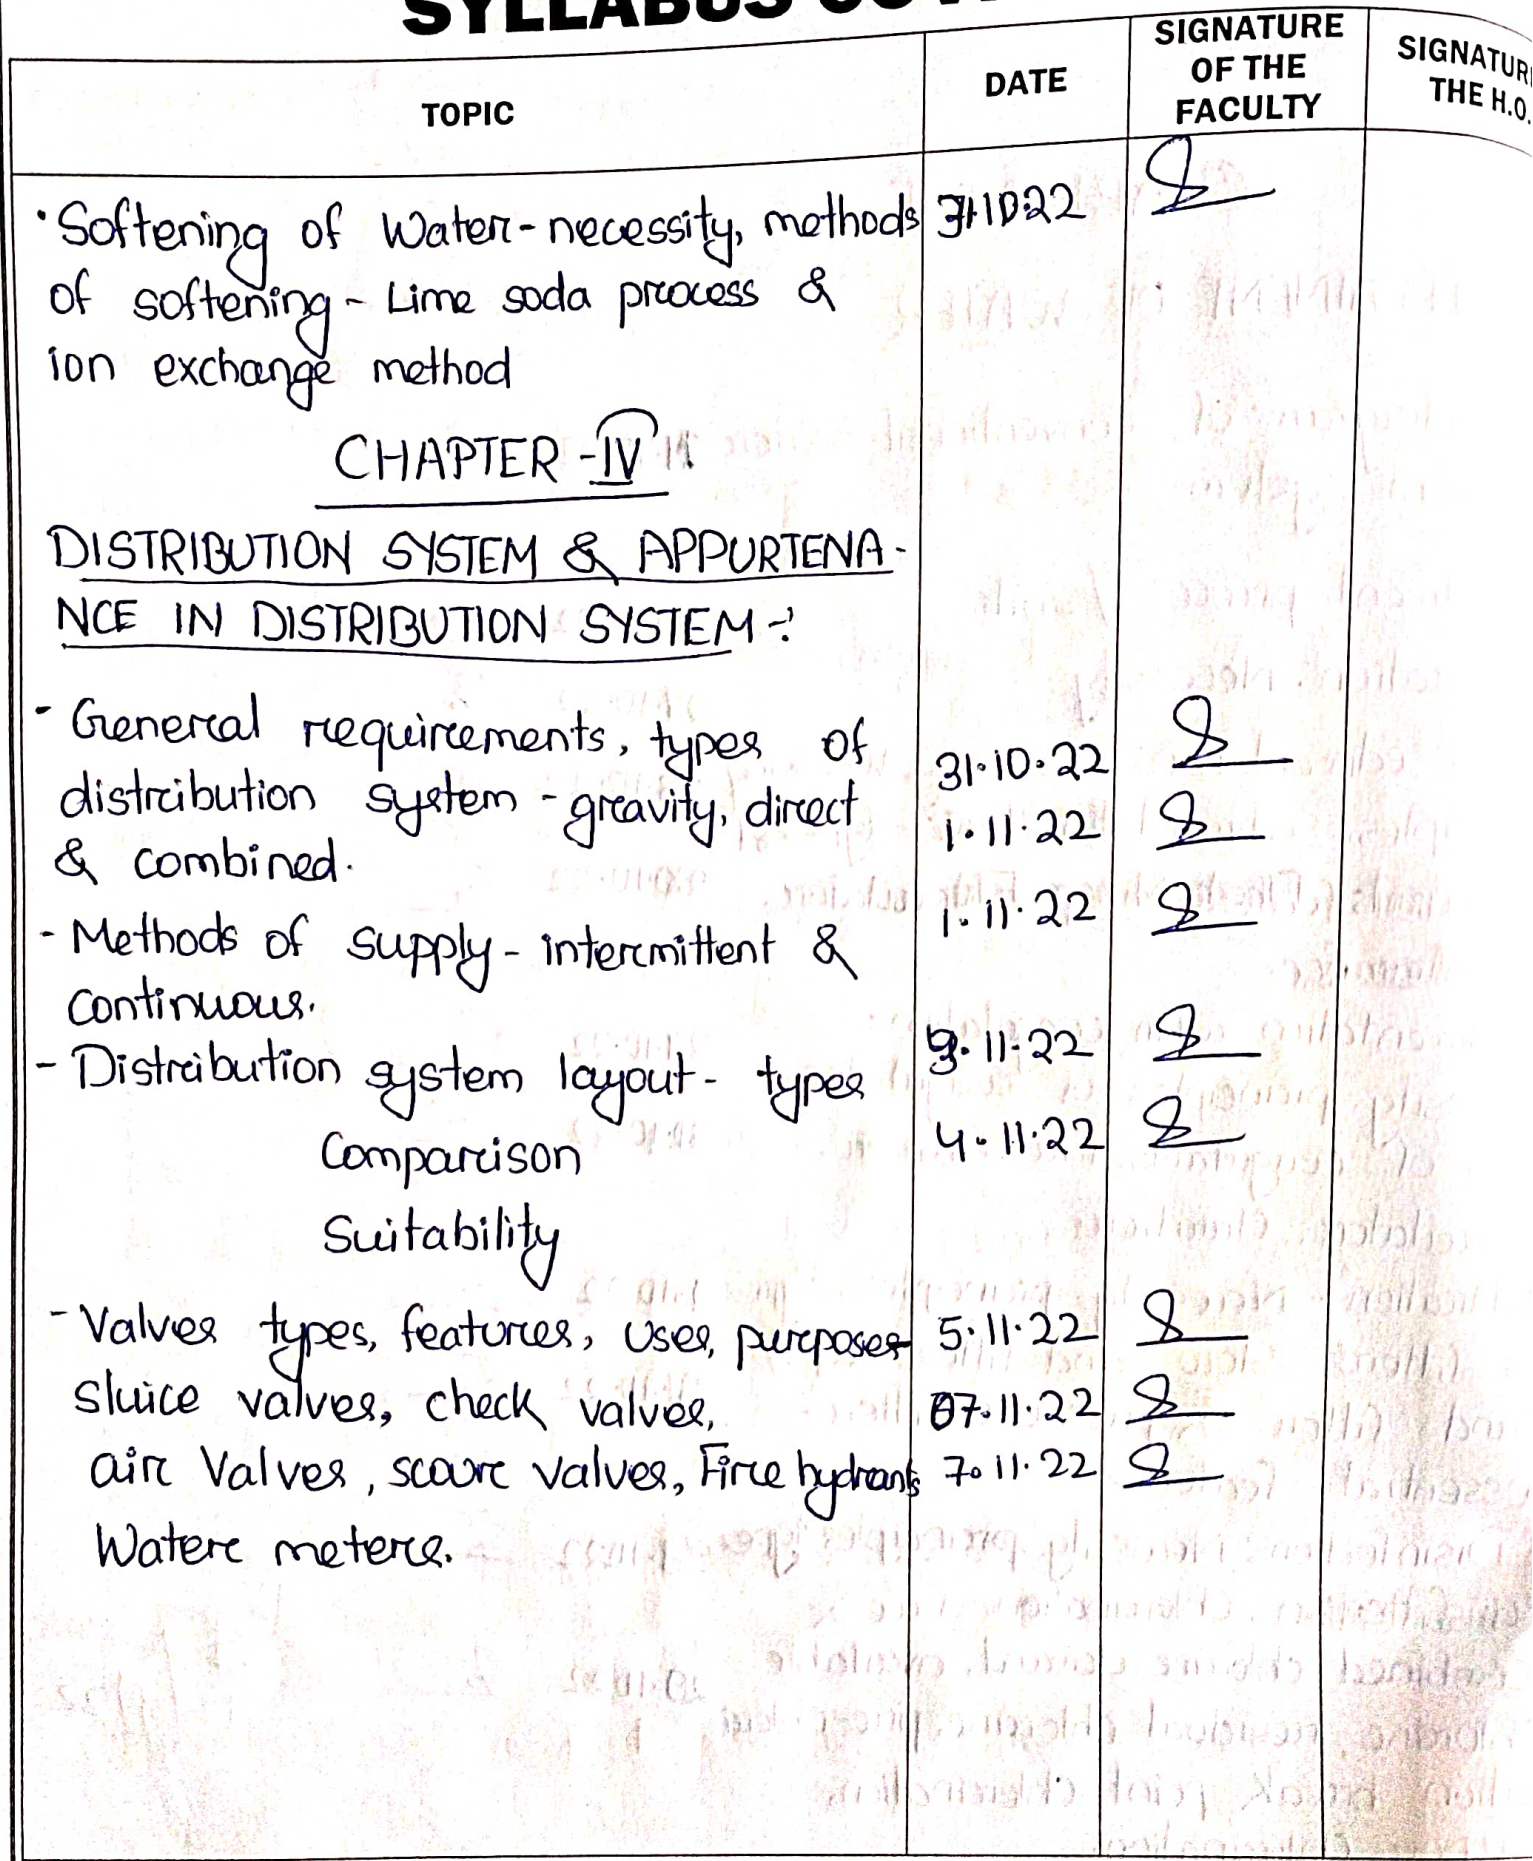 SYLLABUS
TOPIC
DATE
SIGNATURE
OF THE
FACULTY
SIGNATURE
THE H.O.
Softening of Water - necessity, methods 31.10.22
of softening - Lime soda process &
ion exchange method
CHAPTER - IV
DISTRIBUTION SYSTEM & APPURTENA-
NCE IN DISTRIBUTION SYSTEM :-
- General requirements, types of
distribution system - gravity, direct 31.10.22
& combined. 1.11.22
- Methods of supply - intermittent & 1.11.22
continuous.
- Distribution system layout - types 3.11.22
Comparison 4.11.22
Suitability
- Valves types, features, uses, purposes 5.11.22
sluice valves, check valves, 07.11.22
air Valves, scour valves, Fire hydrants 7.11.22
Water meters.